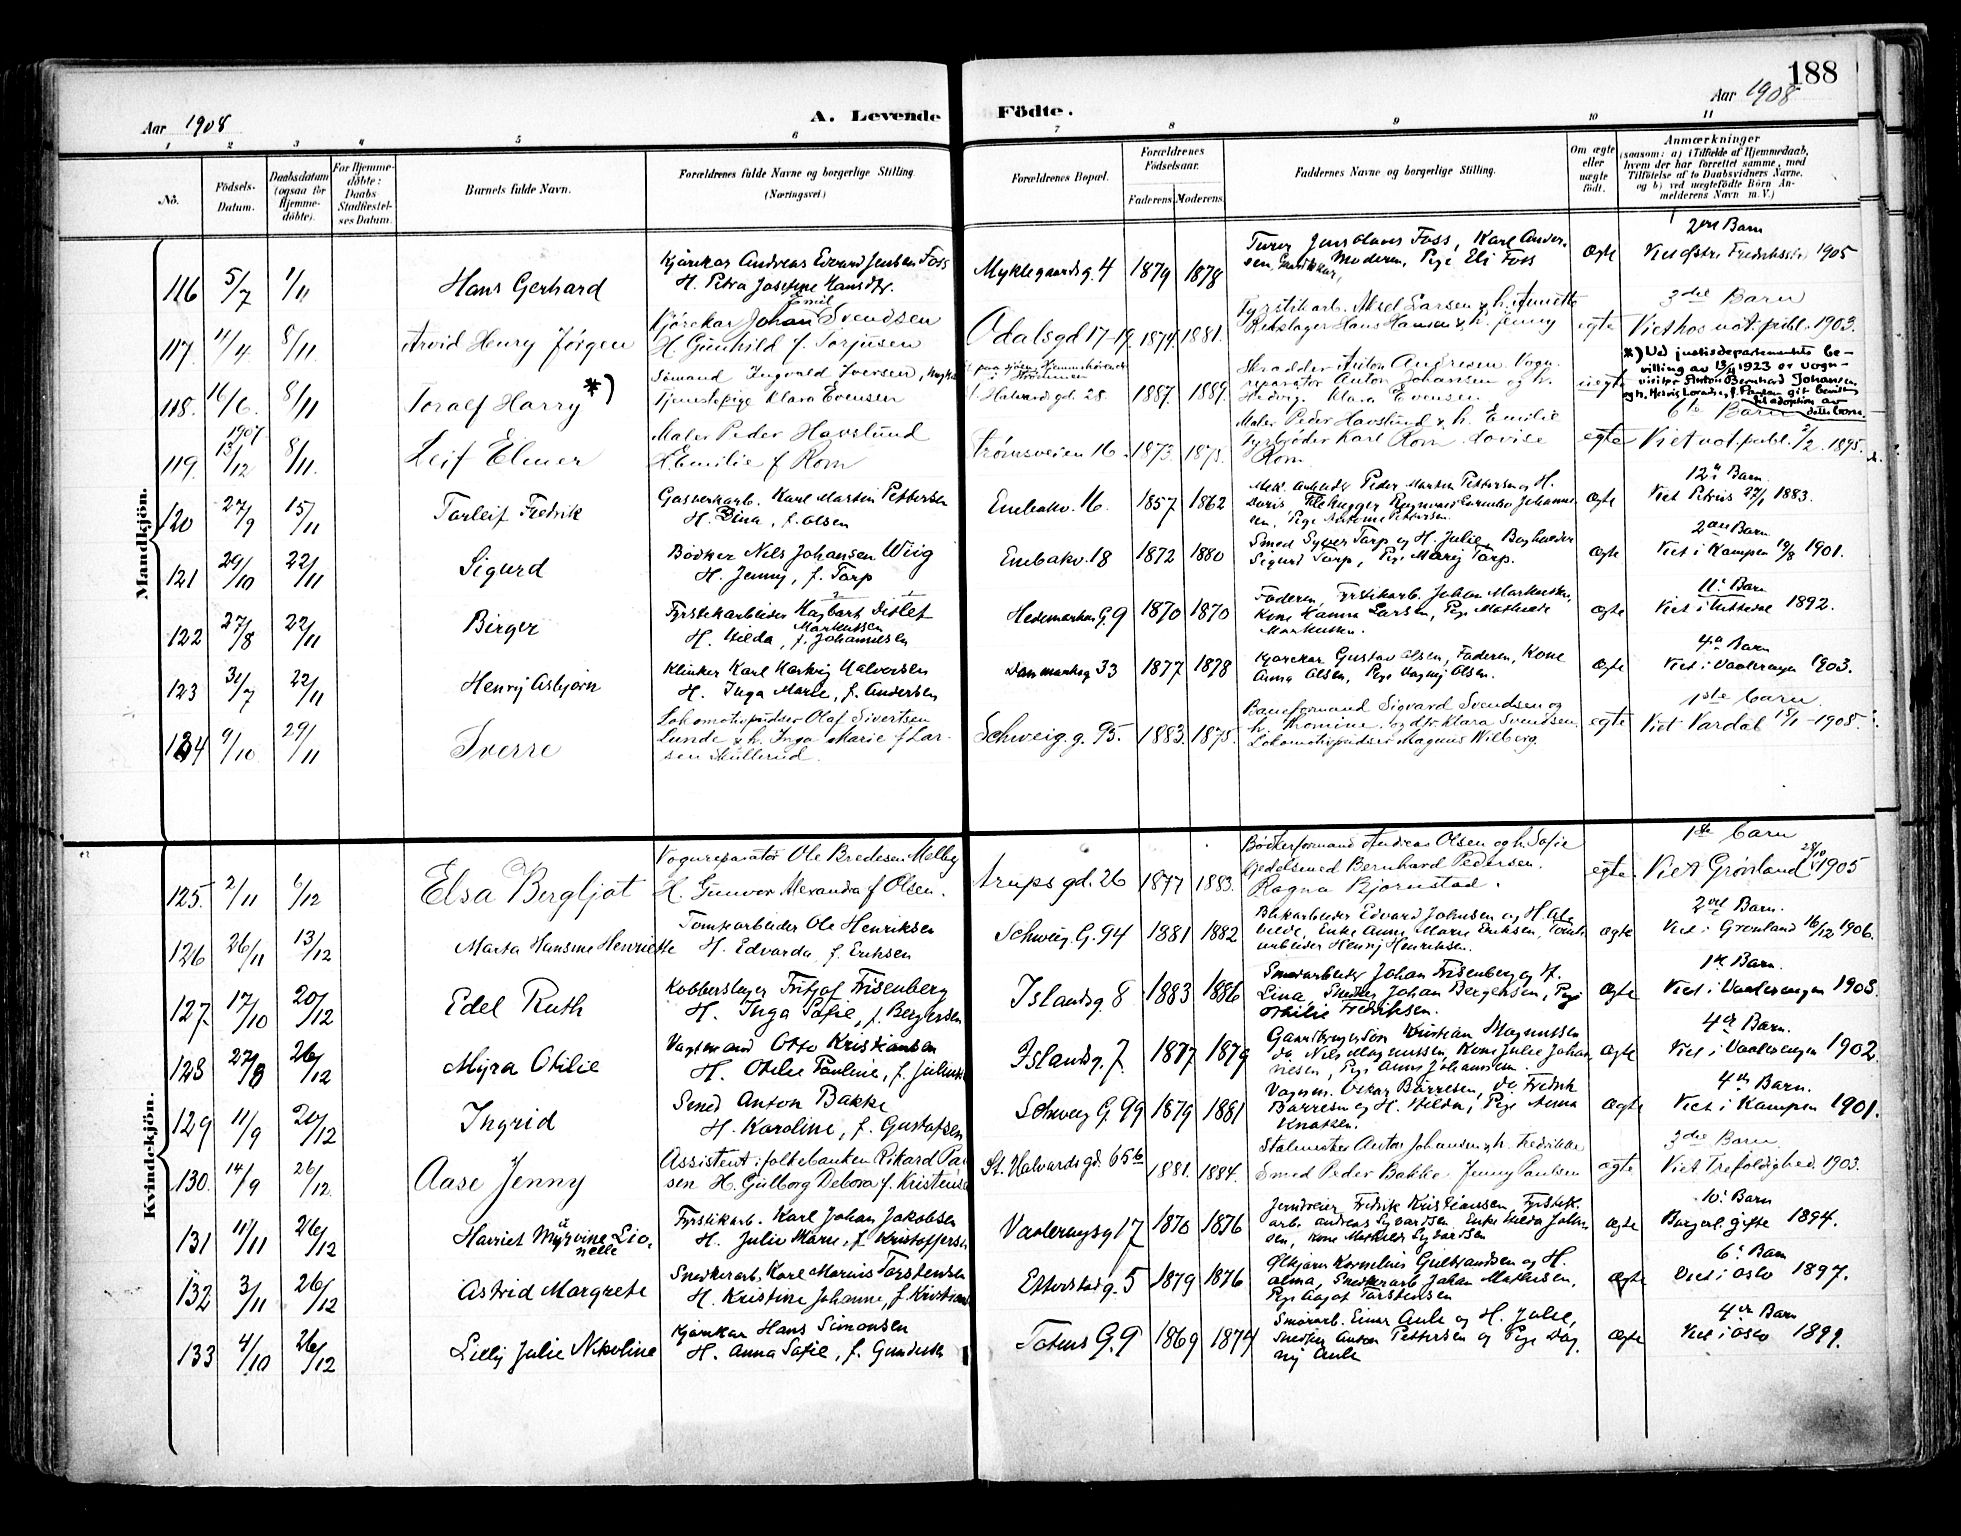 188
Aar 1908
A. Levende Födte.
Aar 1908
1 2 3 4 5 6 7 8 9 10 11
No.
Födsels-Datum.
Daabsdatum (ogsaa för Hjemmedöbte).
For Hjemmedöbte: Daabs Stadfæstelses Datum.
Barnets fulde Navn.
Forældrenes fulde Navne og borgerlige Stilling. (Næringsvei.)
Forældrenes Bopæl.
Forældrenes Födselsaar.
Faderens. Moderens.
Faddernes Navne og borgerlige Stilling.
Om ægte eller uægte födt.
Anmærkninger
(saasom: a) i Tilfælde af Hjemmedaab, hvem der har forrettet samme, med Tilföielse af to Daabsvidners Navne, og b) ved uægtefödte Börn Anmelderens Navn m. V.)
Mandkjön.
2det Barn
116 5/7 1/11 Hans Gerhard
Kjørekar Andreas Edvard Jensen Foss
H. Petra Josefine Hansdtr.
Myklegaardsg. 4 1879 1878
Jens Olaves Foss, Karl Andersen, Moderen, Pige Eli Foss
Ægte
1905
3die Barn
117. 11/4. 8/11 Arvid Henry Jørgen
Kjørekar Johan Emil Svendsen
H. Gunhild f. Torjusen
Odalsgd 17-19 1874. 1881.
Fyrstikarb. Aksel Larsen & h. Anette
Rebslager Hans Hansen & h. Jenny
egte
Viet hos not. publ. 1903.
118. 16/6. 8/11 Toralf Harry *)
Sømand Ingvald Iversen,
Tjenestepige Klara Evensen
St Halvardsgd. 28. 1887. 1889.
Skrædder Anton Andresen Vognreparatør Anton Johansen og h. Hedvig. Klara Evensen.
uegte
*) Ved justisdepartementets bevilling av 13/11 1923 er vognvisitør Anton Bernhard Johansen og h. Hedvig Lovadie, f. git bevilling til adoption av dette barn.
6te Barn
119. 1907 13/12 8/11. Leif Elmer
Maler Peder Havslund
H Emilie f Rom
Strømsveien 16. 1873. 1875.
Maler Peder Havslund & h. Emilie
Fyrbøder Karl Rom. Lovise Rom.
egte
Viet not. publ. 2/2. 1895.
12te Barn
120 27/9 15/11 Torleif Fredrik
Gasverkarb. Karl Martin Pettersen
H. Dina, f. Olsen
Enebakv. 16. 1857 1862
Mek. Arbeider Peder Martin Pettersen og H. Doris Filehugger Johannesen, Pige Antonie Pettersen.
Ægte
Viet Petrus 27/1 1883.
2det Barn
121 29/10 22/11 Sigurd
Bødker Nils Johansen Wiig
H. Jenny, f. Tarp
Enebakv. 18 1872 1880
Smed Syver Tarp og H. Julie, Bogholder
Sigurd Tarp, Pige Marij Tarp.
Ægte
Viet i Kampen 10/8 1901.
11te Barn
122 27/8 22/11 Birger
Fyrstikarbeider Hagbart Ditlef Markussen
H. Hilda, f. Johannesen
Hedemarkens G. 9 1870 1870
Faderen, Fyrstikarb. Johan Markussen, Kone Hanna Larsen, Pige Mathilde Markussen.
Ægte
Viet i 1892.
4de Barn
123 31/7 22/11 Henrij Asbjørn
Klinker Karl Hartvig Halvorsen
H. Inga Marie, f. Andersen
Danmarksg 33 1877 1878
Kjørekar Gustav Olsen, Faderen, Kone Anna Olsen, Pige Dagnij Olsen.
Ægte
Viet i Vaalerengen 1903.
1ste Barn
124 9/10 29/11 Sverre
Lokomotivpudser Olaf Sivertsen
Lunde & h. Inga Marie f Larsen Skullerud.
Schweig. g. 95. 1883. 1875.
Baneformand Sigvard Svendsen og h. Klara Svendsen. Lokomotivpudser Magnus Wilberg.
egte
Viet Vardal 15/1 - 1908.
Kvindekjön.
1ste Barn
125. 2/11 6/12 Elsa Bergljot
Vognreparatør Ole Bredesen Melby
H. Gunvor Alexandra f Olsen.
Strupsgd. 26 1877 1883.
Bødkerformand Andreas Olsen og h. Sofie
Gjedelsmed Bernhard Pedersen.
Ragna Bjørnstad.
egte
Viet Grønland 28/10 1905
2det Barn.
126 26/11 13/12 Marta Hansine Henriette
Tomtearbeider Ole Henriksen
H. Edvarda, f. Eriksen
Schweig. G. 94 1881 1882
Blikarbeider Edvard Johnsen og H. Alvilde, Enke Anne Marie Eriksen, Tomtarbeider Henrij Henriksen.
Ægte
Viet i Grønland 16/12 1906.
1ste Barn.
127. 17/10 20/12 Edel Ruth
Kobberslager Fritjof Frisenberg
H. Inga Sofie, f. Bergersen
Islandsg. 8 1883 1886
Smørarbeider Johan Frisenberg og H. Lina, Snedker Johan Bergersen, Pige Othilie Fredriksen.
Ægte
Viet i Vaalerengen 1908.
4de Barn.
128 27/8 26/12 Mijra Otilie
Vagtmand Otto Kristiansen
H. Otilie Pauline, f. Julius
Islandsg. 7. 1877 1879
Gaardbrugersøn Kristian Magnussen do. Nils Magnussen, Kone Julie Johannesen, Pige Anna Johannesen.
Ægte
Viet i Vaalerengen 1902.
4de Barn.
129 11/9 20/12 Ingrid
Smed Anton Bakke
H. Karoline, f. Gustafsen
Schweig G. 99 1879 1881
Vognm. Oskar Børresen, do Fredrik Børresen og H. Hilda, Pige Anna Knutsen.
Ægte
Viet i Kampen 1901.
3die Barn.
130. 14/9 26/12. Aase Jenny
Assistent i folkebanken Rikard Paulsen H. Gulborg Debora f. Kristensen
St. Halvards gd. 65b 1881. 1884.
Staldmester Anton Johansen & h. Fredrikke
Smed Peder Bakke. Jenny Paulsen
egte
Viet Trefoldighed. 1903.
10. Barn
131 11/11 26/12 Harriet Myrvine Lionelle
Fyrstikarb. Karl Johan Jakobsen
H. Julie Marie, f. Kristoffersen
Vaalerengsg 17 1870 1876
Jerndreier Fredrik Kristianssen, Fyrstikarb. Andreas Syvertsen. Enke Hilda Johnsen, Kone Mathilde Syvertsen
Ægte
Borgerl. gifte 1894.
6. Barn
132 3/11 26/12 Astrid Margrete
Snedkerarb. Karl Marius Torstensen
H. Kristine Johanne, f. Kristians
Etterstadg. 5 1879 1876
Ølkjører Kornelius Gulbrandsen og H. Alma, Snedkerarb. Johan Mathisen, Pige Aagot Torstensen
Ægte
Viet i Oslo 1897.
4de Barn
133 4/10 26/12 Lillij Julie Nikoline
Kjørekar Hans Simonsen
H. Anna Sofie, f. Gundersen
Totens G. 9 1869 1874
Smørarb. Einar Aule og H. Julie, Snedker Anton Pettersen og Pige Dagnij Aule
Ægte
Viet i Oslo 1899.